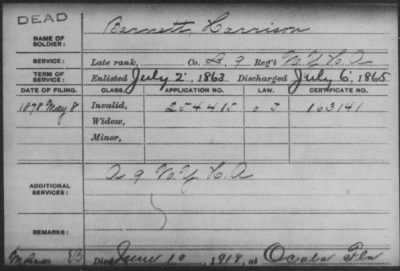 DEAD
NAME OF SOLDIER: Barnett Harrison
SERVICE: Late rank, Co. L. 9 Reg't N.Y.H.A
TERM OF SERVICE: Enlisted July 2, 1863 Discharged July 6, 1865
DATE OF FILING. CLASS. APPLICATION NO. LAW. CERTIFICATE NO.
1878 May 8 Invalid, 254415 103141
Widow,
Minor,
ADDITIONAL SERVICES: A 9 N.Y.H.A
REMARKS:
Died June 10, 1918, at Ocala Fla